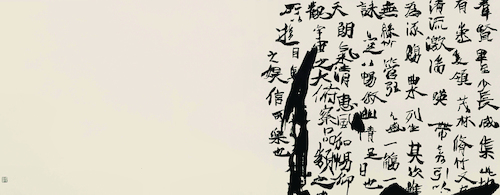 羣賢畢至少長咸集此地
有崇山領茂林脩竹又
清流激湍暎帶左右引以
為流觴曲水列坐其次雖
無絲竹管弦盛一觴一
詠足以暢敘幽情是日也
天朗氣清惠風和暢仰
觀宇宙之大俯察品類之
所遊目
之娛信可樂也